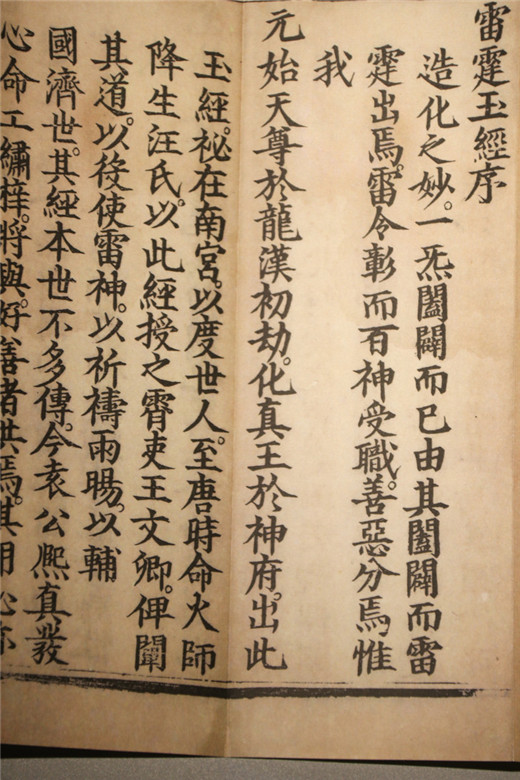 雷霆玉經序
造化之妙。一炁闔闢而已由其闔闢而雷
霆出焉。雷令彰而百神受職。善惡分焉。惟
我
元始天尊於龍漢初劫。化真王於神府。出此
玉經。祕在南宮。以度世人。至唐時命火師
降生汪氏。以此經授之霄吏王文卿。俾闡
其道。以役使雷神。以祈禱雨暘。以輔
國濟世。其經本世不多傳。今袁公熈真發
心命工繡梓。將與好善者共焉。其用心亦